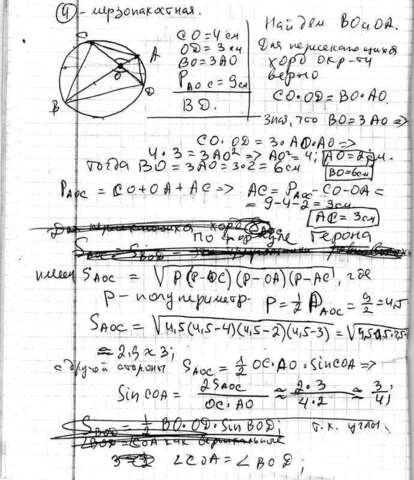 ④ - мрзопакостная.
C
A
O
B
D
CO = 4 см
OD = 3 см
BO = 3AO
P_AOC = 9 см
BD.
Найдем BO и OA.
Для пересекающихся
хорд окр-ти
верно
CO·OD = BO·AO.
зная, что BO = 3AO =>
CO·OD = 3·AO·AO =>
4·3 = 3AO² => AO² = 4; AO = 2 см.
тогда BO = 3AO = 3·2 = 6 см
BO = 6 см
P_AOC = CO + OA + AC => AC = P_AOC - CO - OA =
= 9 - 4 - 2 = 3 см
AC = 3 см
По формуле Герона
имеем S_AOC = √P(P-OC)(P-OA)(P-AC), где
P - полупериметр P = ½ P_AOC = 9/2 = 4,5
S_AOC = √4,5(4,5-4)(4,5-2)(4,5-3) =
≈ 2,9 ≈ 3;
с другой стороны S_AOC = ½ OC·AO·Sin COA =>
Sin COA = 2S_AOC / OC·AO ≈ 2·3 / 4·2 ≈ 3/4;
S_BOD = ½ BO·OD·Sin BOD,
т.к. углы
∠BOD = ∠COA как вертикальные
∠COA = ∠BOD;